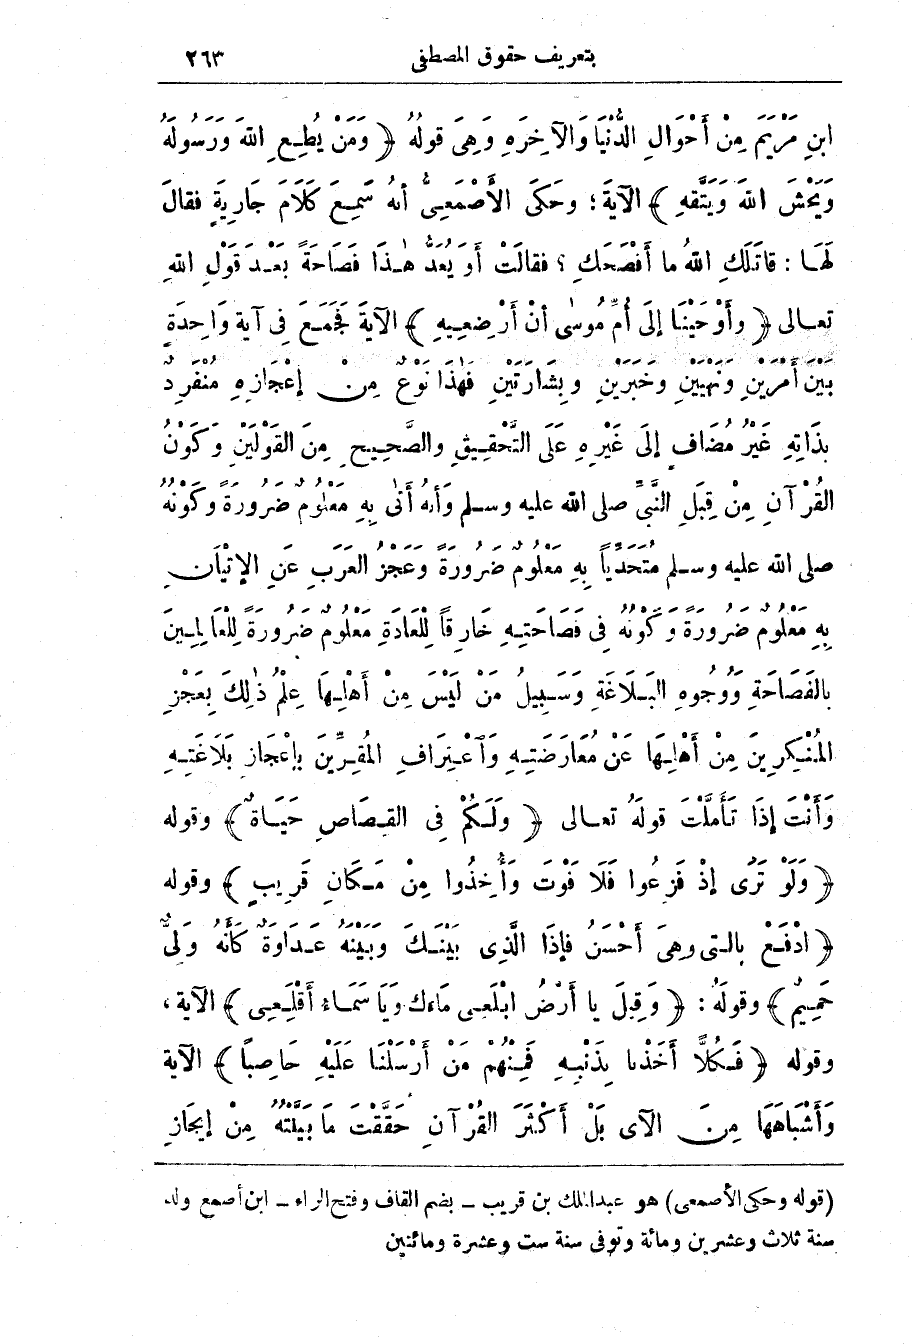 بتعريف حقوق المصطفى ٢٦٣
ابنِ مَرْيَمَ مِنْ أَحْوَالِ الدُّنْيَا وَالآخِرَهِ وَهِىَ قولُهُ ﴿ وَمَنْ يُطِعِ اللهَ وَرَسُولَهُ
وَيَخْشَ اللهَ وَيَتَّقهِ ﴾ الآيَةَ ؛ وحَكَى الأَصْمَعِىُّ أنهُ سَمِعَ كَلَامَ جَارِيَةٍ فقالَ
لَهَا : قاتَلَكِ اللهُ ما أَفْصَحَكِ ؟ فقالَتْ أَوَ يُعَدُّ هٰذَا فَصَاحَةً بَعْدَ قَوْلِ اللهِ
تعالى ﴿ وأَوْحَيْنَا إلَى أُمِّ مُوسٰى أنْ أَرْضِعِيهِ ﴾ الآيَةَ فَجَمَعَ فِى آية وَاحِدَةٍ
بَيْنَ أَمرَيْنِ وَنَهْيَيْنِ وخَبَرَيْنِ وبِشَارَتَيْنِ فَهٰذَا نَوْعٌ مِنْ إعْجَازِهِ مُنْفَرِدٌ
بذَاتِهِ غَيْرُ مُضَافٍ إلَى غَيْرِهِ عَلَى التَّحْقِيقِ والصَّحِيحِ مِنَ القَوْلَيْنِ وَكَوْنُ
القُرْآنِ مِنْ قِبَلِ النَّبِىِّ صلى الله عليه وسلم وَأنهُ أَتَى بِهِ مَعْلُومٌ ضَرُورَةً وكَوْنُهُ
صلى الله عليه وسلم مُتَحَدِّياً بِهِ مَعْلُومٌ ضَرُورَةً وعَجْزُ العَرَبِ عَنِ الإتْيَانِ
بِهِ مَعْلُومٌ ضَرُورَةً وَكَوْنُهُ فِى فَصَاحَتِهِ خَارِقاً لِلْعَادَةِ مَعْلُومٌ ضَرُورَةً لِلْعَالِمِينَ
بالفَصَاحَةِ وَوُجُوهِ البَلَاغَةِ وَسَبِيلُ مَنْ لَيْسَ مِنْ أَهْلِهَا عِلْمُ ذٰلِكَ بِعَجْزِ
المُنْكِرِينَ مِنْ أَهْلِهَا عَنْ مُعَارَضَتِهِ وَاعْتِرَافِ المُقِرِّينَ بإعْجَازِ بَلَاغَتِهِ
وَأَنْتَ إذَا تَأَمَّلْتَ قولَهُ تعالى ﴿ وَلَكُمْ فِى القِصَاصِ حَيَاةٌ ﴾ وقوله
﴿ وَلَوْ تَرَى إذْ فَزِعُوا فَلَا فَوْتَ وَأُخِذُوا مِنْ مَكَانٍ قَرِيبٍ ﴾ وقوله
﴿ ادْفَعْ بالتى وهِىَ أَحْسَنُ فإذَا الَّذِى بَيْنَكَ وَبَيْنَهُ عَدَاوَةٌ كَأَنَّهُ وَلِىٌّ
حَمِيمٌ ﴾ وقولَهُ : ﴿ وَقِيلَ يا أَرْضُ ابْلَعِى مَاءَكِ وَيَا سَمَاءُ أَقْلِعِى ﴾ الآية ،
وقوله ﴿ فَكُلًّا أَخَذْنَا بِذَنْبِهِ فَمِنْهُمْ مَنْ أَرْسَلْنَا عَلَيْهِ حَاصِبًا ﴾ الآية
وَأَشْبَاهَهَا مِنَ الآى بَلْ أَكْثَرَ القُرْآنِ حَقَّقْتَ مَا بَيَّنْتُهُ مِنْ إيجَازِ
(قوله وحكى الأصمعى) هو عبدالملك بن قريب ــ بضم القاف وفتح الراء ــ ابن أصمع ولد
سنة ثلاث وعشرين ومائة وتوفى سنة ست وعشرة ومائتين